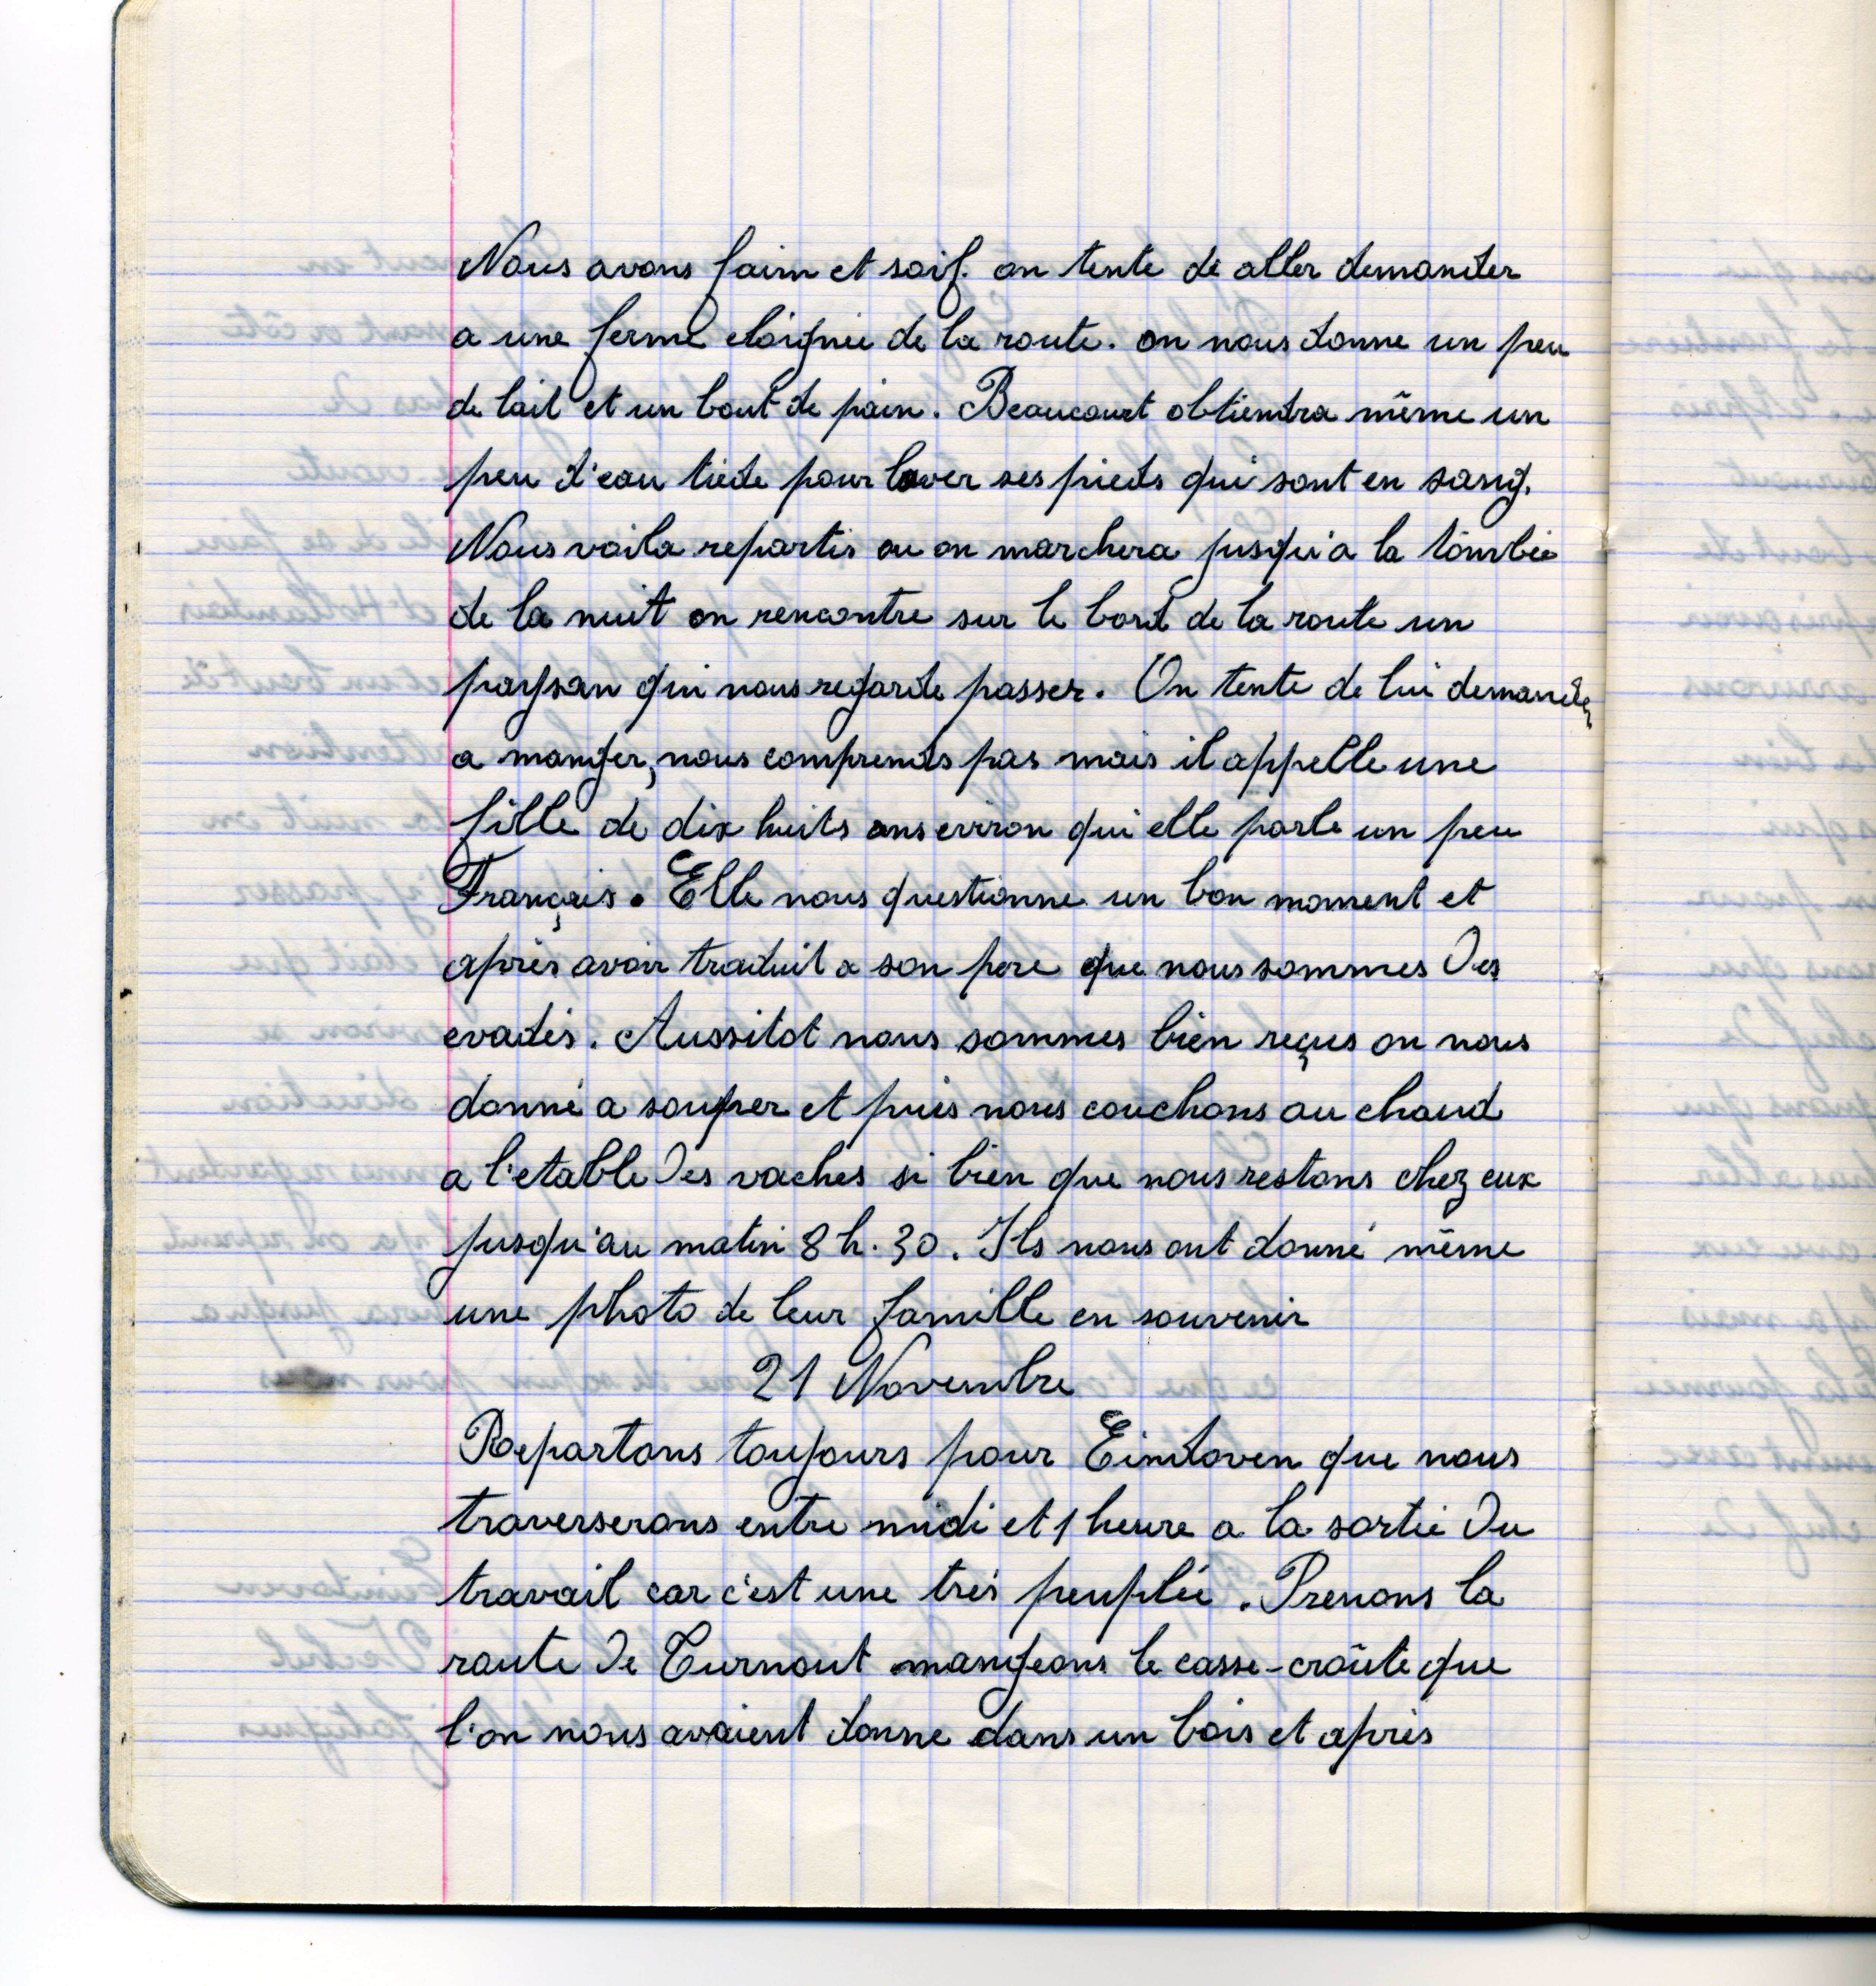 Nous avons faim et soif. on tente de aller demander
a une ferme eloignée de la route. on nous donne un peu
de lait et un bout de pain. Beaucourt obtiendra même un
peu d'eau tiede pour laver ses pieds qui sont en sang.
Nous voila repartis ou on marchera jusqu'a la tombée
de la nuit on rencontre sur le bord de la route un
paysan qui nous regarde passer. On tente de lui demander
a manger, nous comprends pas mais il appelle une
fille de dix huits ans eviron qui elle parle un peu
Français. Elle nous questionne un bon moment et
après avoir traduit a son pere que nous sommes des
evadés. Aussitot nous sommes bien reçus on nous
donné a souper et puis nous couchons au chaud
a l'etable des vaches si bien que nous restons chez eux
jusqu'au matin 8 h. 30. Ils nous ont donné même
une photo de leur famille en souvenir
21 Novembre
Repartons toujours pour Eindoven que nous
traverserons entre midi et 1 heure a la sortie du
travail car c'est une trés peuplée. Prenons la
route de Turnout mangeons le casse-croûte que
l'on nous avaient donne dans un bois et après